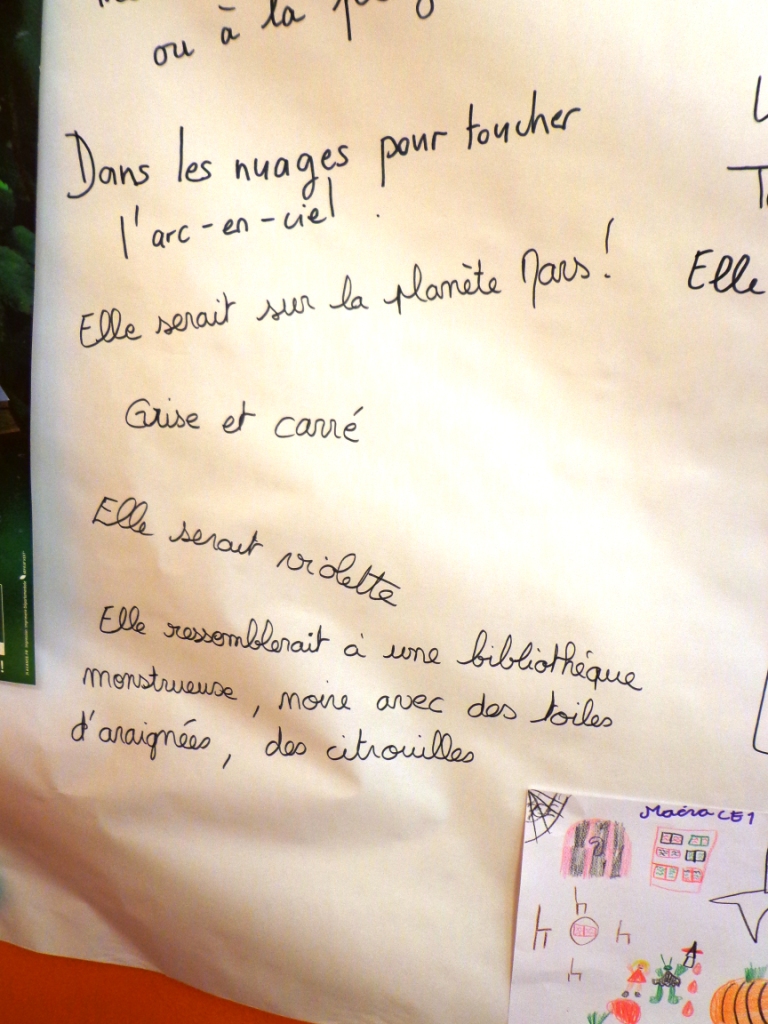 ou à la
Dans les nuages pour toucher
l'arc-en-ciel.
Elle serait sur la planète Mars !
Elle
Grise et carré
Elle serait violette
Elle ressemblerait à une bibliothéque
monstrueuse, noire avec des toiles
d'araignées, des citrouilles
CE1